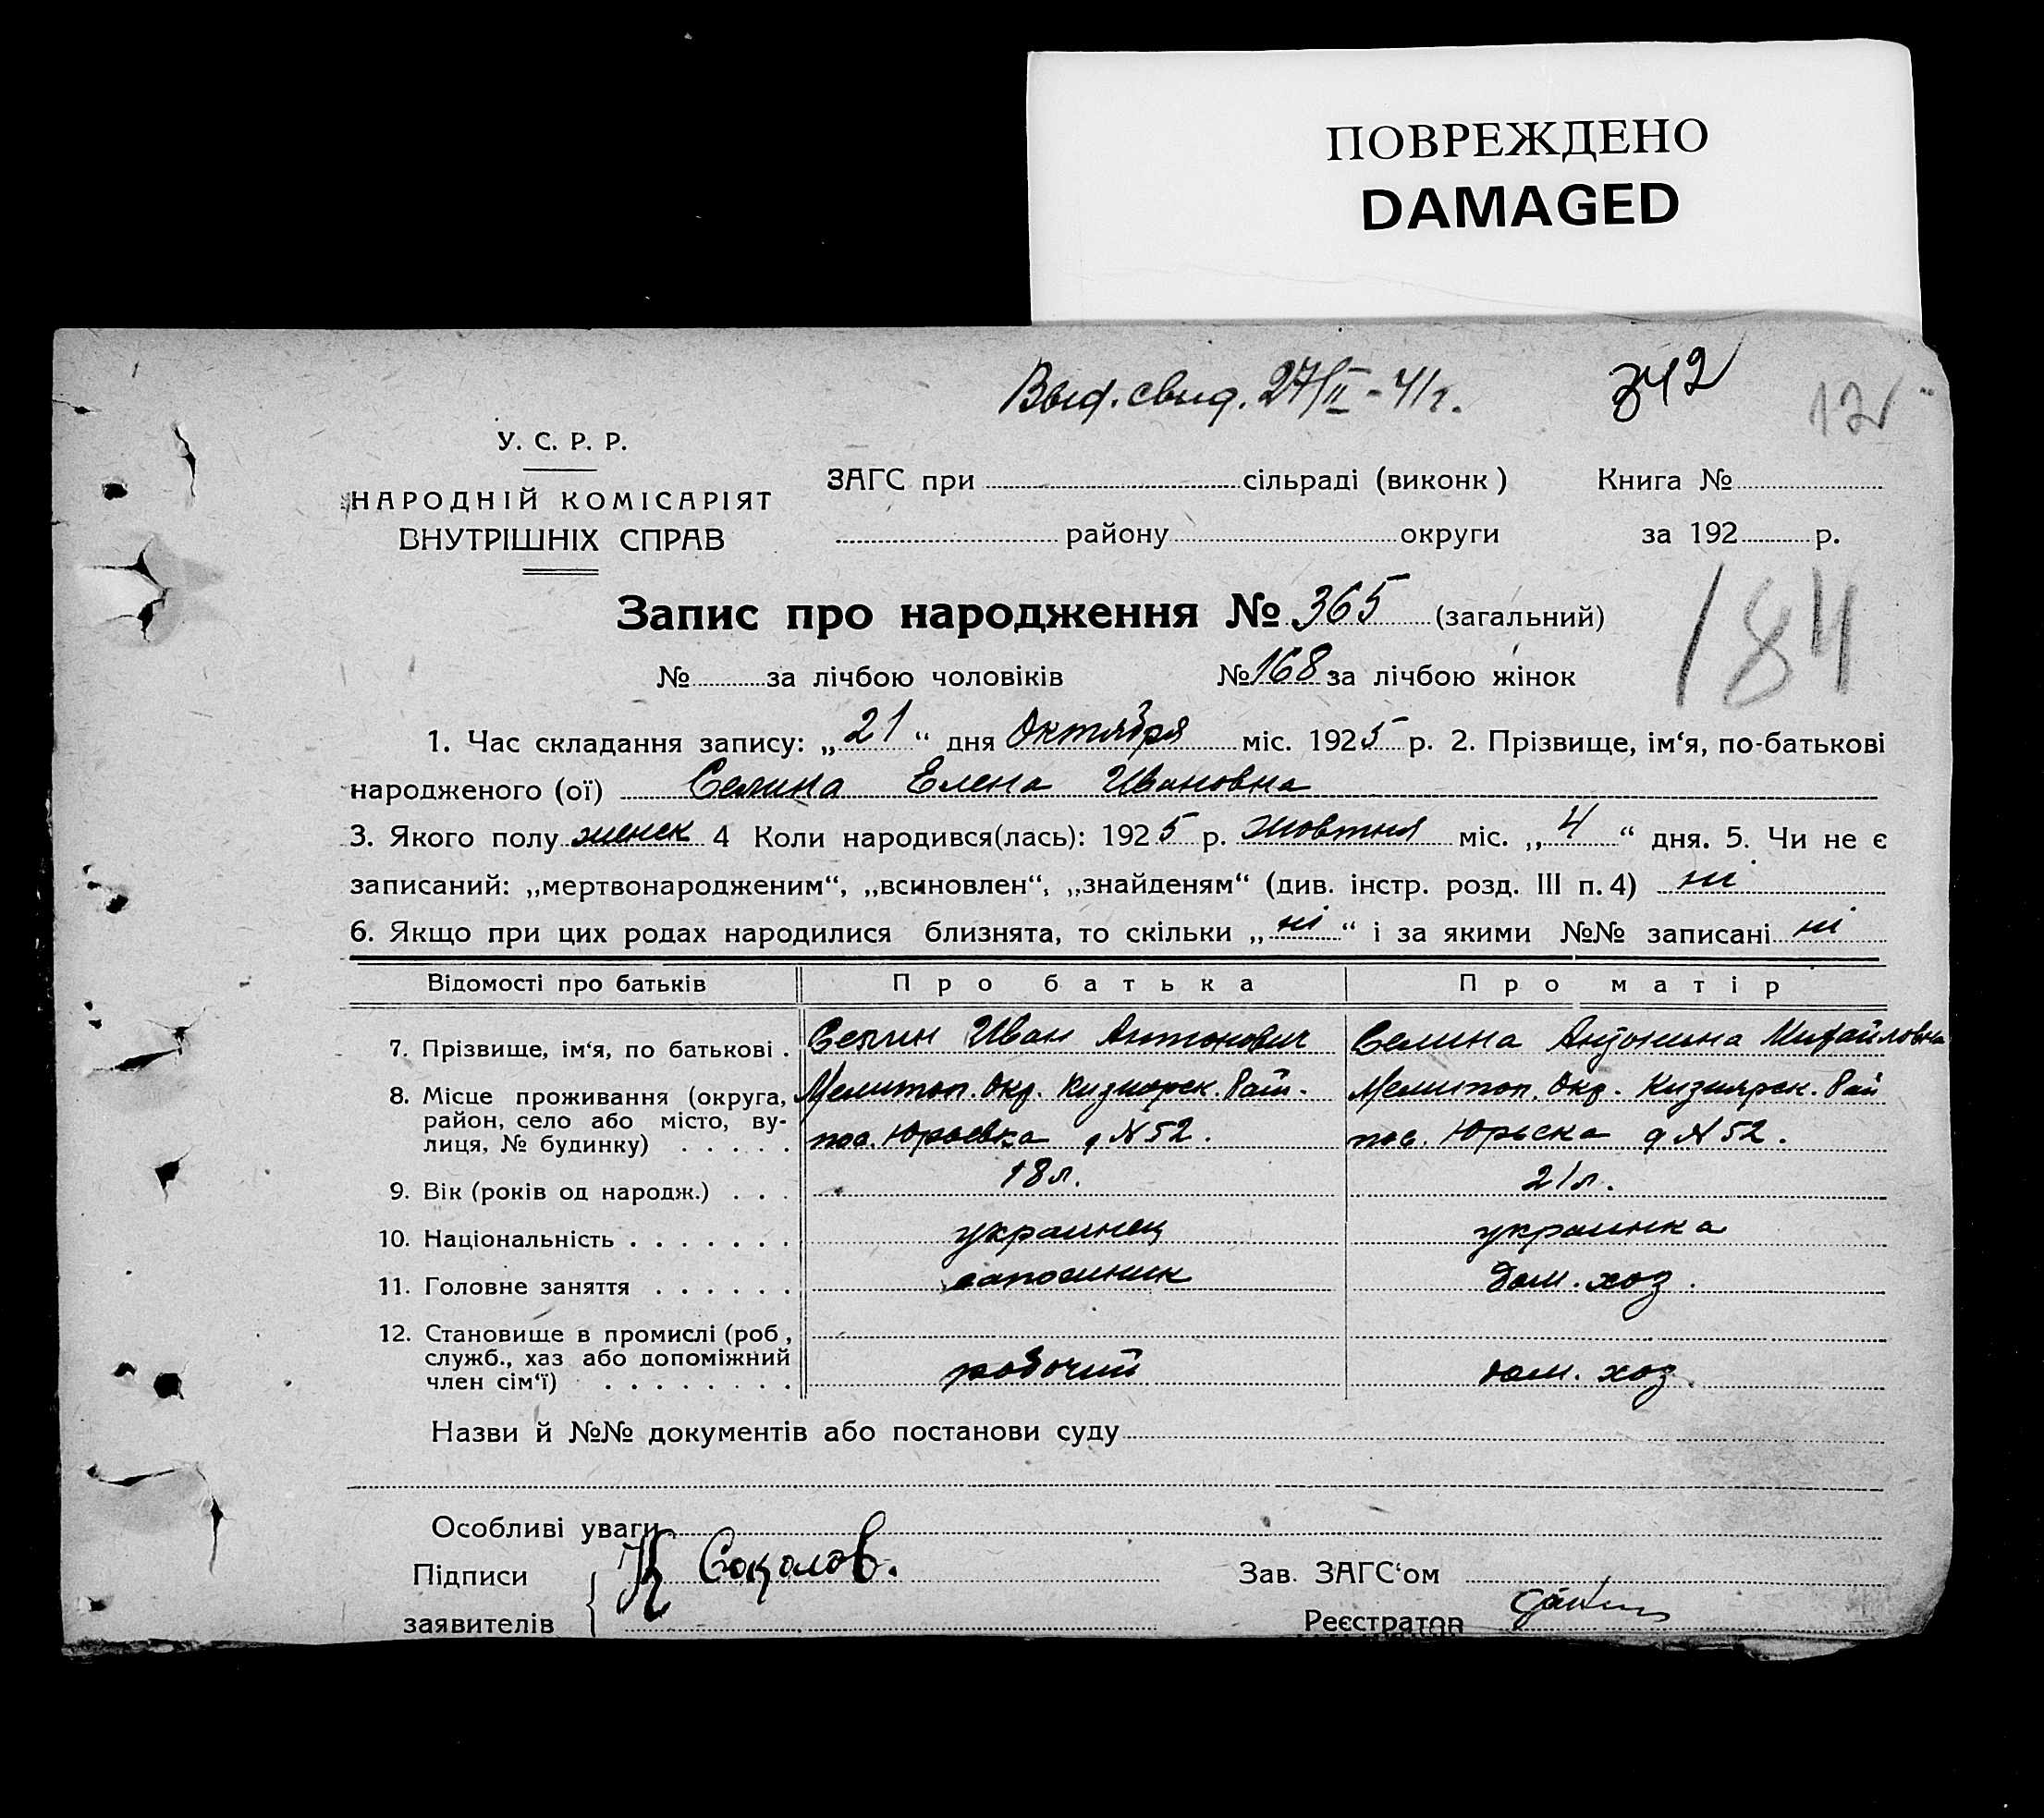 ПОВРЕЖДЕНО
DAMAGED
Выд. свид. 27/II - 41 г.
342
12
У. С. Р. Р.
НАРОДНІЙ КОМІСАРІЯТ
ВНУТРІШНІХ СПРАВ
ЗАГС при сільраді (виконк)
Книга №
району округи
за 192 р.
Запис про народження № 365 (загальний)
184
№ за лічбою чоловіків № 168 за лічбою жінок
1. Час складання запису: „21“ дня Октября міс. 1925 р. 2. Прізвище, ім‘я, по-батькові
народженого (ої) Селина Елена Ивановна
3. Якого полу женск 4 Коли народився(лась): 1925 р. жовтня міс. „4“ дня. 5. Чи не є
записаний: „мертвонародженим“, „всиновлен“, „знайденям“ (див. інстр. розд. III п. 4) ні
6. Якщо при цих родах народилися близнята, то скільки „ні“ і за якими №№ записані ні
Відомості про батьків Про батька Про матір
7. Прізвище, ім‘я, по батькові . Селин Иван Антонович Селина Антонина Михайловна
8. Місце проживання (округа, Мелитоп. Окр. Кизиярск. Рай. Мелитоп. Окр. Кизиярск. Рай
район, село або місто, ву-
лиця, № будинку) . . . . . пос. Юрьевка д N 52. пос. Юрьевка д N 52.
9. Вік (років од народж.) . . . 18 л. 21 л.
10. Національність . . . . . . . украинец украинка
11. Головне заняття . . . . . . сапожник дом. хоз.
12. Становище в промислі (роб,
служб., хаз або допоміжний
член сім‘ї) . . . . . . . . рабочий дом. хоз.
Назви й №№ документів або постанови суду
Особливі уваги
Підписи Соколов.
Зав. ЗАГС‘ом
заявителів
Реєстратор